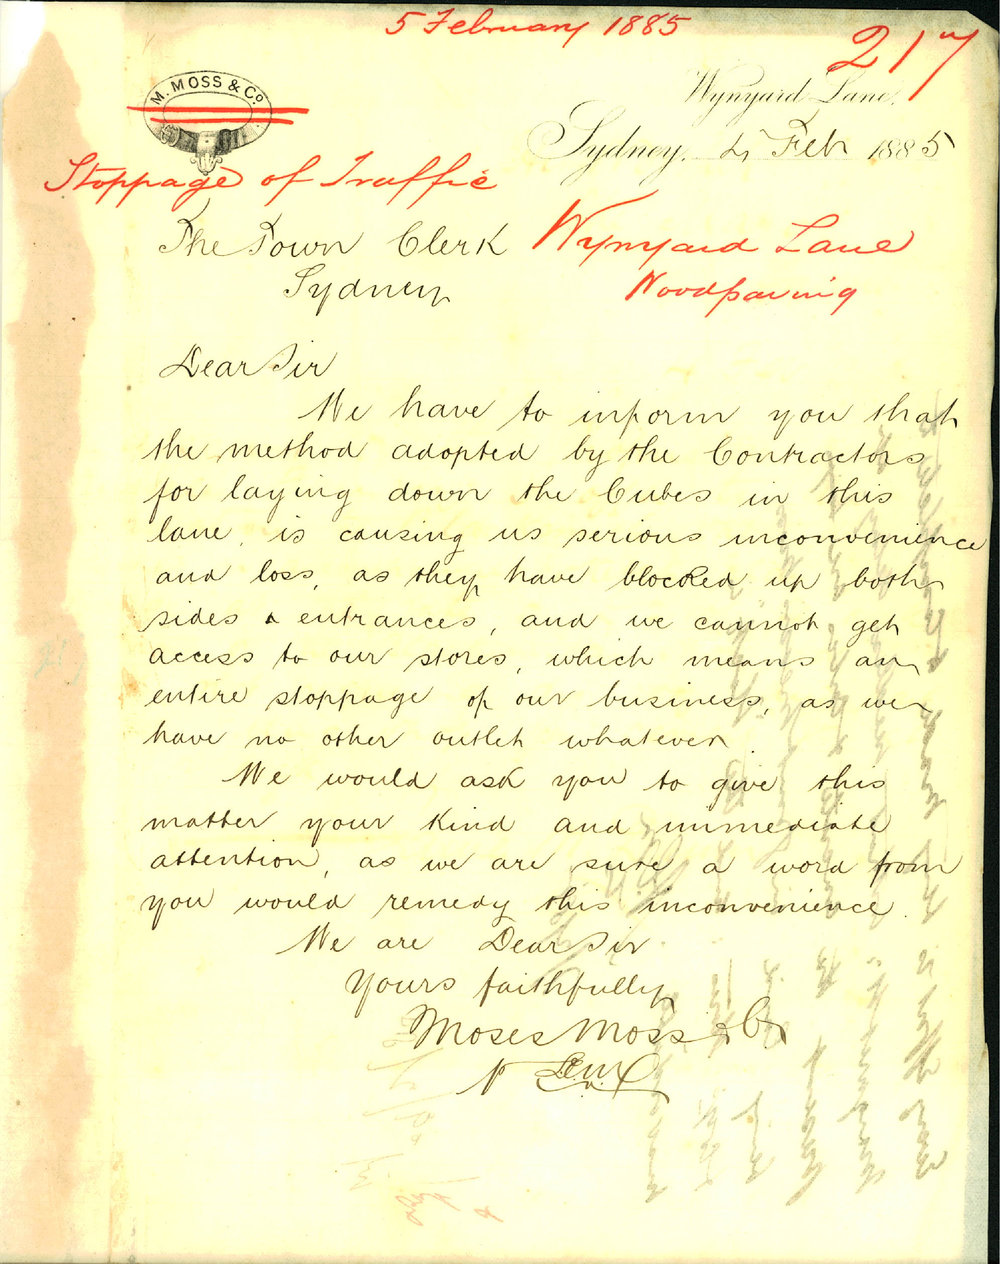 5 February 1885
217
M. MOSS & Co
Wynyard Lane,
Sydney, 4 Feb 1885
Stoppage of Traffic
The Town Clerk
Sydney
Wynyard Lane
Woodpaving
Dear Sir
We have to inform you that
the method adopted by the Contractors
for laying down the Cubes in this
lane, is causing us serious inconvenience
and loss, as they have blocked up both
sides & entrances, and we cannot get
access to our stores, which means an
entire stoppage of our business, as we
have no other outlet whatever.
We would ask you to give this
matter your kind and immediate
attention, as we are sure a word from
you would remedy this inconvenience.
We are Dear Sir
Yours faithfully
Moses Moss & Co